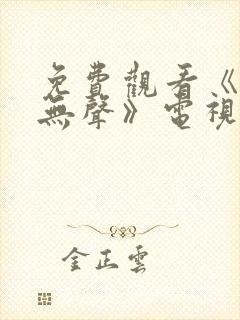 免費觀看《
無聲》電視
金正雲